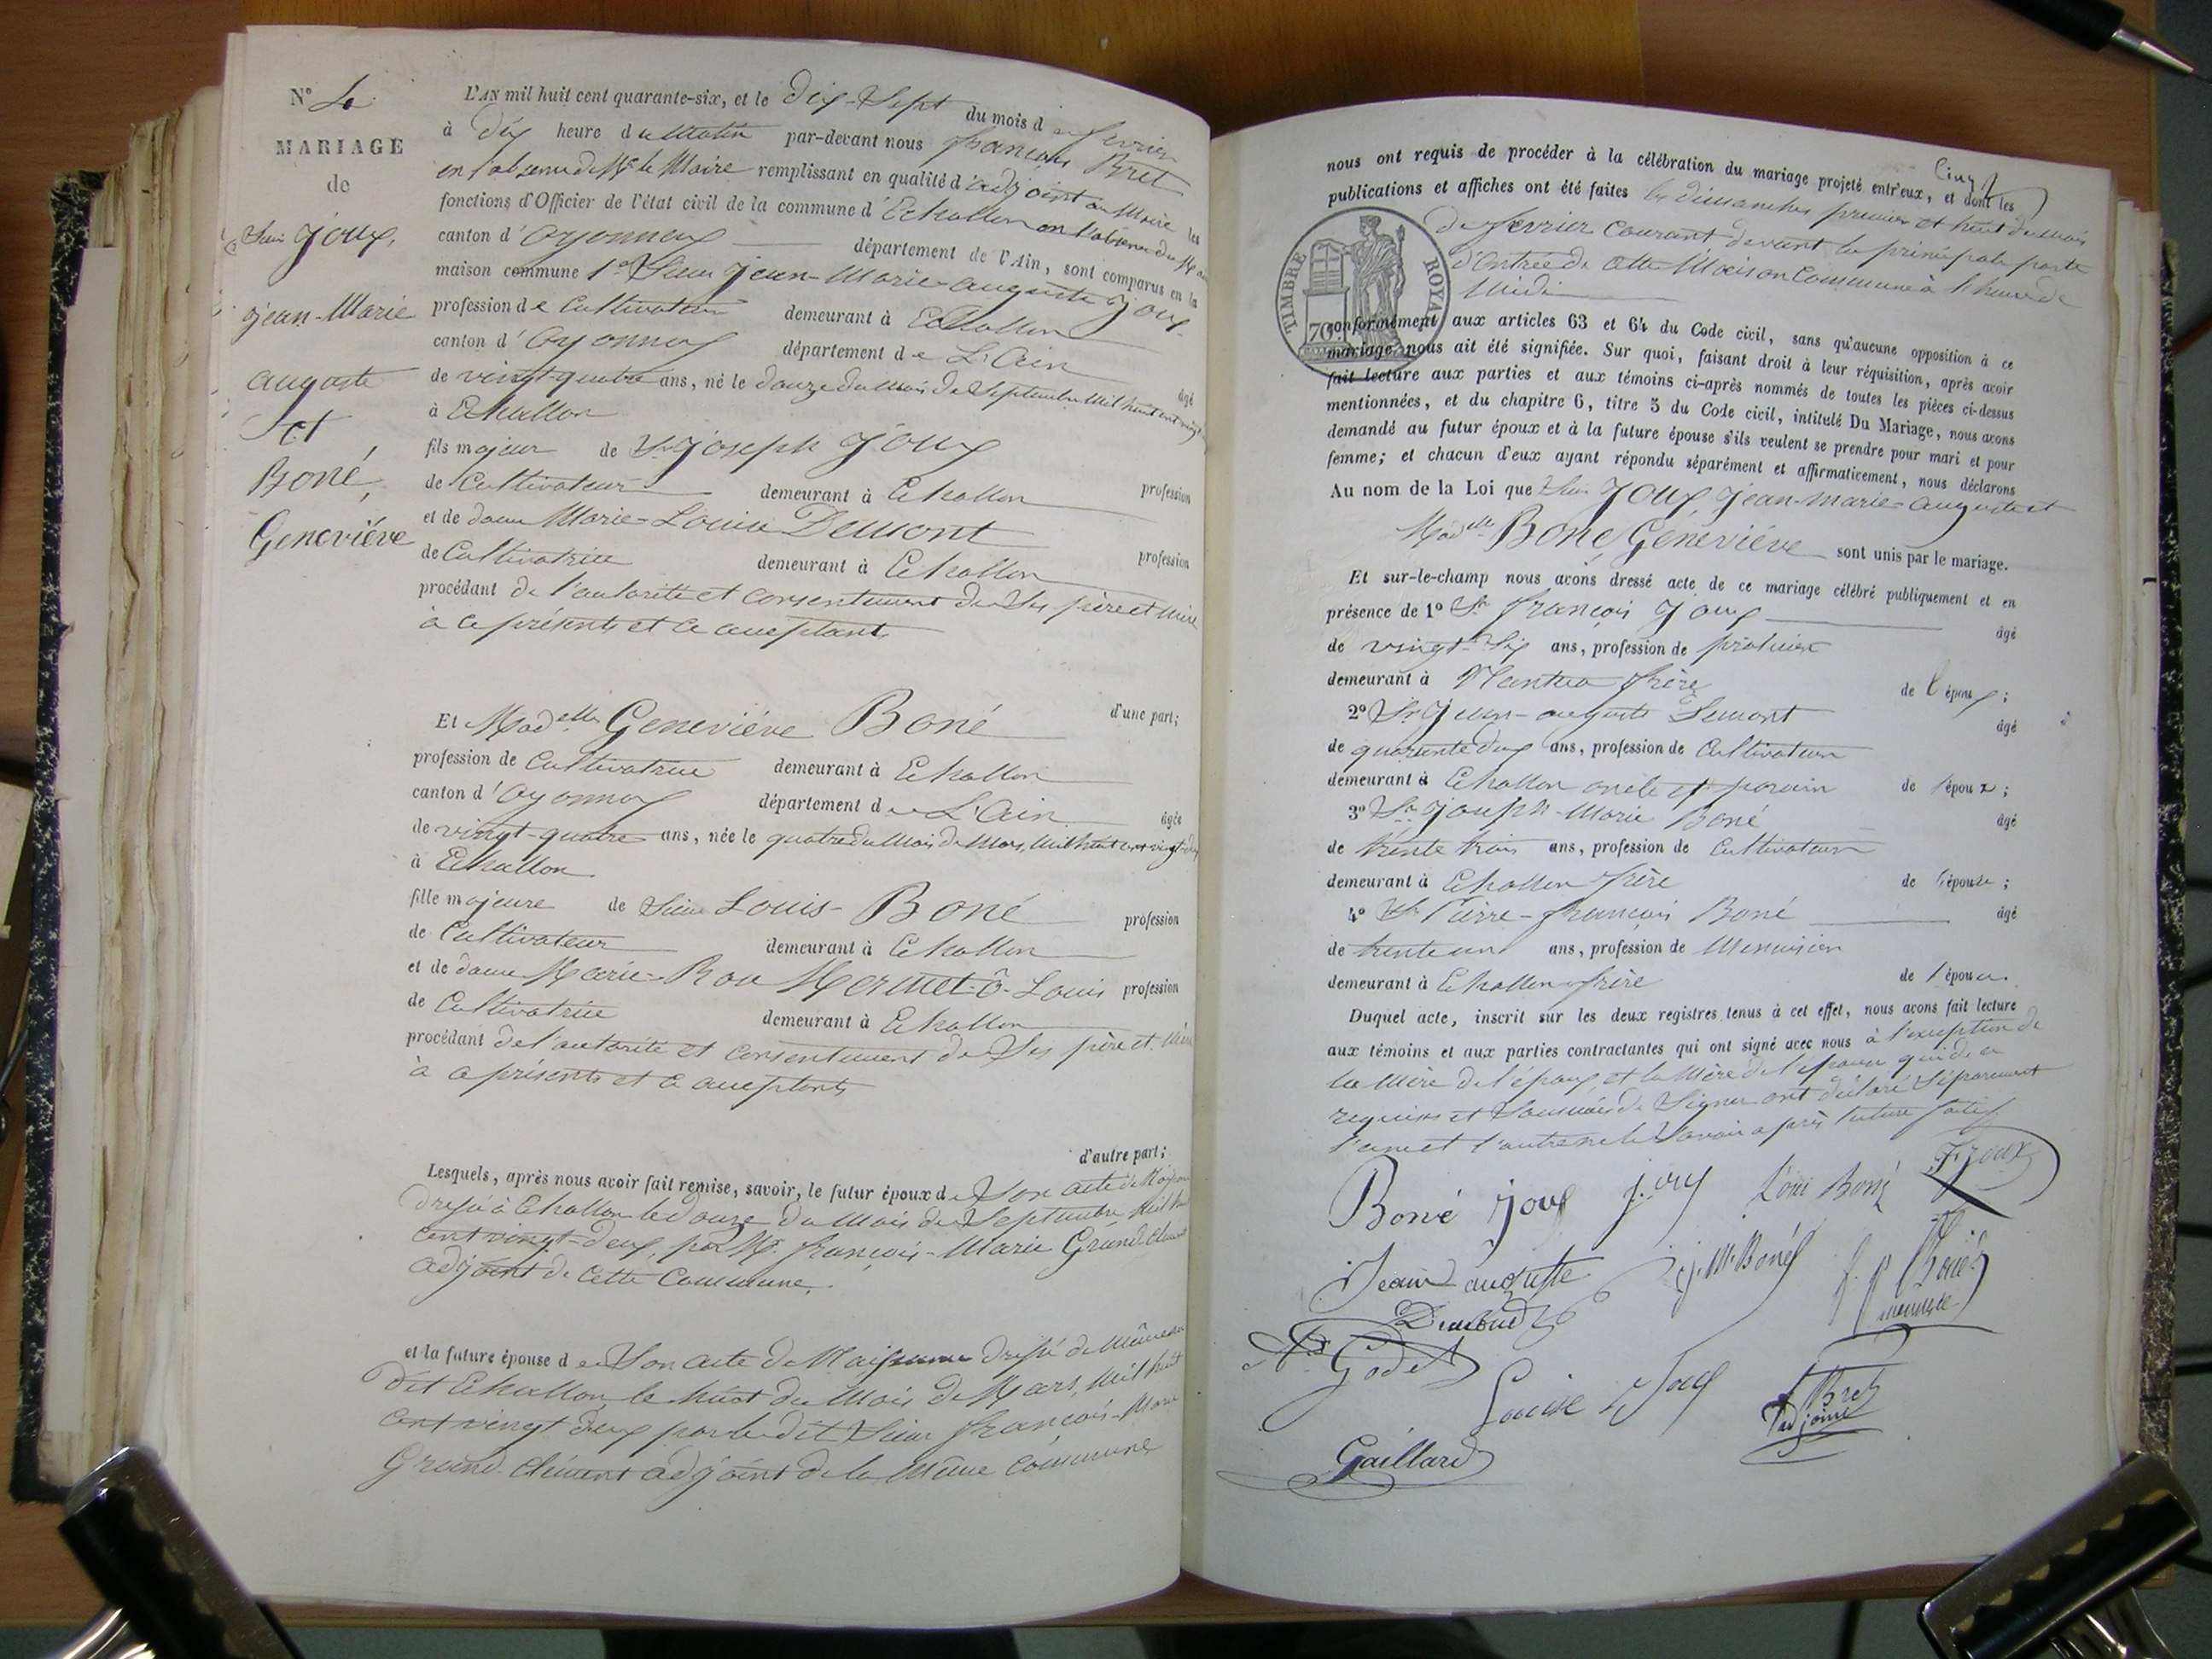 N° 4
MARIAGE
de
Sieur Joux,
Jean-Marie
auguste
et
Boné,
Geneviéve
L'AN mil huit cent quarante-six, et le dix-Sept du mois de fevrier
à dix heure du Matin par-devant nous françois Bret
en l'absence de Mr le Maire remplissant en qualité d'adjoint au Maire les
fonctions d'Officier de l'état civil de la commune d'Echallon en l'absence du
canton d'Oyonnax département de l'Ain, sont comparus en la
maison commune 1° Sieur Jean-Marie-auguste Joux
profession de Cultivateur demeurant à Echallon
canton d'Oyonnax département de L'Ain âgé
de vingt-quatre ans, né le douze du mois de Septembre Mil huit cent vingt
à Echallon
fils majeur de Sr Joseph Joux profession
de Cultivateur demeurant à Echallon
et de dame Marie-Louise Demont profession
de Cultivatrice demeurant à Echallon
procédant de l'autorité et consentement de Ses père et mère
à ce présents et ce acceptants
d'une part;
Et Madelle Geneviéve Boné
profession de Cultivatrice demeurant à Echallon
canton d'Oyonnax département de L'Ain âgée
de vingt-quatre ans, née le quatre du Mois de Mars, Mil huit cent vingt-deux
à Echallon
fille majeure de Sieur Louis-Boné profession
de Cultivateur demeurant à Echallon
et de dame Marie-Rose Mermet-ô-Louis profession
de Cultivatrice demeurant à Echallon
procédant de l'autorité et consentement de Ses père et Mère
à ce présents et ce acceptants
d'autre part;
Lesquels, après nous avoir fait remise, savoir, le futur époux de Son acte de Naissance
dressé à Echallon le douze du Mois de Septembre Mil huit
cent vingt-deux, par Mr. françois-Marie Grand-Clément
adjoint de cette Commune.
et la future épouse de Son acte de Naissance dressé de Même au
dit Echallon, le huit du Mois de Mars, Mil huit
cent vingt deux par le dit Sieur françois-Marie
Grand-Clément adjoint de la Même Commune
Cinq
nous ont requis de procéder à la célébration du mariage projeté entr'eux, et dont les
publications et affiches ont été faites les dimanches premier et huit du Mois
de fevrier Courant devant la principale porte
d'Entrée de cette Maison Commune à l'heure de
Midi
TIMBRE ROYAL
70c
conformément aux articles 63 et 64 du Code civil, sans qu'aucune opposition à ce
mariage nous ait été signifiée. Sur quoi, faisant droit à leur réquisition, après avoir
fait lecture aux parties et aux témoins ci-après nommés de toutes les pièces ci-dessus
mentionnées, et du chapitre 6, titre 5 du Code civil, intitulé Du Mariage, nous avons
demandé au futur époux et à la future épouse s'ils veulent se prendre pour mari et pour
femme; et chacun d'eux ayant répondu séparément et affirmativement, nous déclarons
Au nom de la Loi que Sieur Joux Jean-marie-auguste et
Madelle Boné Geneviéve sont unis par le mariage.
Et sur-le-champ nous avons dressé acte de ce mariage célébré publiquement et en
présence de 1° Sr françois Joux âgé
de vingt-Six ans, profession de praticien
demeurant à Nantua frère de l'époux;
2° Sr Jean-auguste Demont âgé
de quarante deux ans, profession de Cultivateur
demeurant à Echallon oncle et parain de l'époux;
3° Sr Joseph-Marie Boné âgé
de trente trois ans, profession de Cultivateur
demeurant à Echallon frère de l'épouse;
4° Sr Pierre-françois Boné âgé
de trente un ans, profession de Menuisier
demeurant à Echallon frère de l'épouse.
Duquel acte, inscrit sur les deux registres tenus à cet effet, nous avons fait lecture
aux témoins et aux parties contractantes qui ont signé avec nous à l'exception de
la Mère de l'époux et la Mère de l'épouse qui de ce
requises et Sommées de Signer ont déclaré Séparément
l'une et l'autre ne le Savoir après lecture faite
Boné Joux J. oux Loui Boné F. Joux
Jean auguste J. M. Boné Boné
Demond
Godet
Louise Joux Bret
adjoint
Gaillard